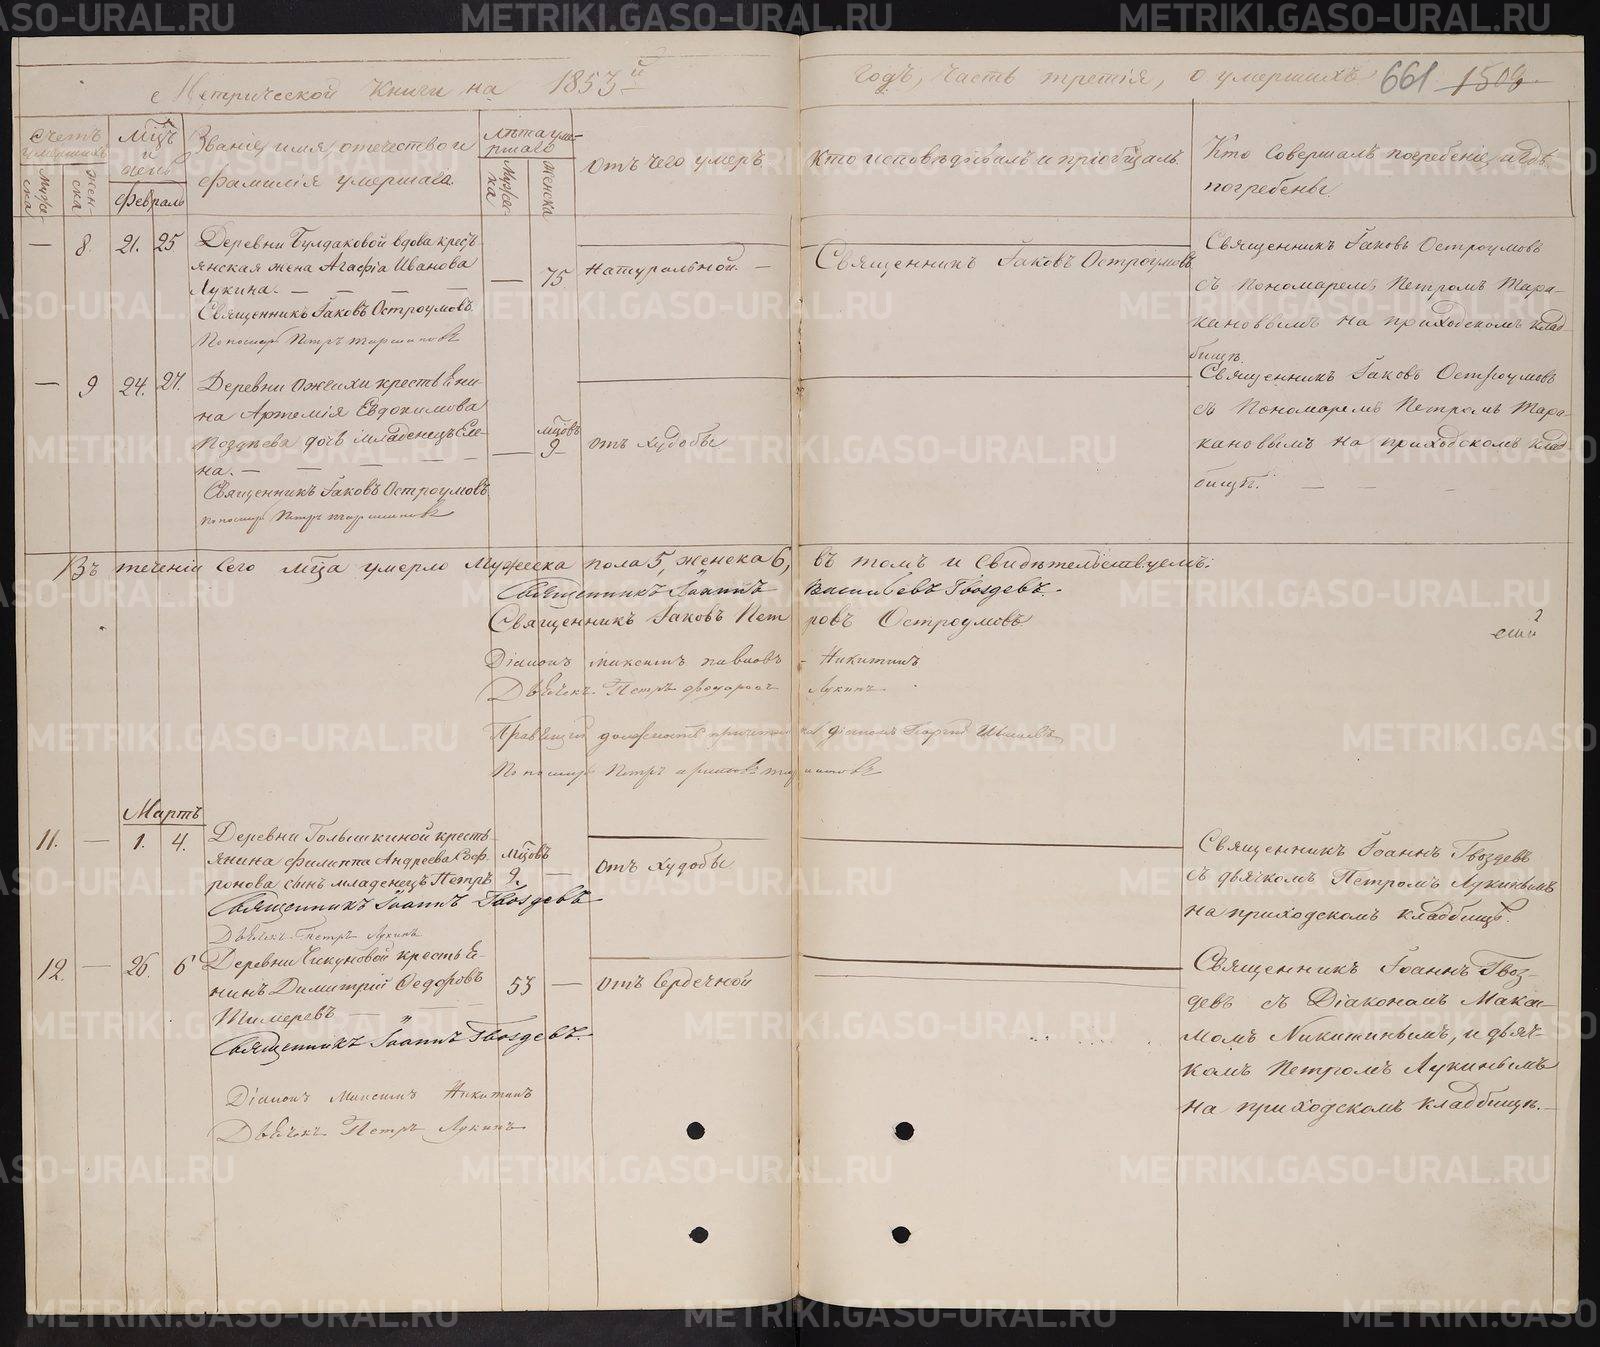 Метрической Книги на 1853й годъ, часть третія, о умершихъ 661 1508
Счетъ умершихъ
Мужеска
Женска
Мцъ и день
Февраль
Званіе, имя, отечество и
фамилія умершаго.
Лѣта умершаго
Мужеска
Женска
отъ чего умеръ
Кто исповѣдывалъ и пріобщалъ.
Кто совершалъ погребеніе, и гдѣ
погребены
— 8. 21. 25
Деревни Булдаковой вдова кресть-
янская жена Агафіа Иванова
Лукина. — — — —
Священникъ Іаковъ Остроумовъ.
Пономарь Петръ Таракановъ
— 75
Натуральной. —
Священникъ Іаковъ Остроумовъ
Священникъ Іаковъ Остроумовъ
съ Пономаремъ Петромъ Тара-
кановымъ на приходскомъ клад-
бищѣ.
— 9 24. 27.
Деревни Ожгихи крестьяни-
на Артемія Евдокимова
Позднева дочь младенецъ Еле-
на. — — — —
Священникъ Іаковъ Остроумовъ
Пономарь Петръ Таракановъ
— мцовъ 9
отъ худобы
Священникъ Іаковъ Остроумовъ
съ Пономаремъ Петромъ Тара-
кановымъ на приходскомъ клад-
бищѣ. — —
Въ теченіи сего мца умерло мужеска пола 5, женска 6, въ томъ и свидѣтельствуемъ:
Священникъ Іоаннъ Васильевъ Гвоздевъ.
Священникъ Іаковъ Петровъ Остроумовъ
Діаконъ Максимъ Павловъ Никитинъ
Дьячекъ Петръ Федоровъ Лукинъ
Правящій должность причетника діаконъ Георгій
Пономарь Петръ Таракановъ
Мартъ
11. — 1. 4.
Деревни Голышкиной кресть-
янина Филиппа Андреева Соф-
ронова сынъ младенецъ Петръ
Священникъ Іоаннъ Гвоздевъ
Дьячекъ Петръ Лукинъ
мцовъ 9. —
отъ худобы
Священникъ Іоаннъ Гвоздевъ
съ дьячкомъ Петромъ Лукинымъ
на приходскомъ кладбищѣ.
12. — 26. 6
Деревни Чикуновой крестья-
нинъ Димитрій Федоровъ
Шимеревъ —
Священникъ Іоаннъ Гвоздевъ.
Діаконъ Максимъ Никитинъ
Дьячекъ Петръ Лукинъ
53 —
отъ сердечной
Священникъ Іоаннъ Гвоз-
девъ съ Діакономъ Макси-
момъ Никитинымъ, и дьяч-
комъ Петромъ Лукинымъ
на приходскомъ кладбищѣ. —
METRIKI.GASO-URAL.RU